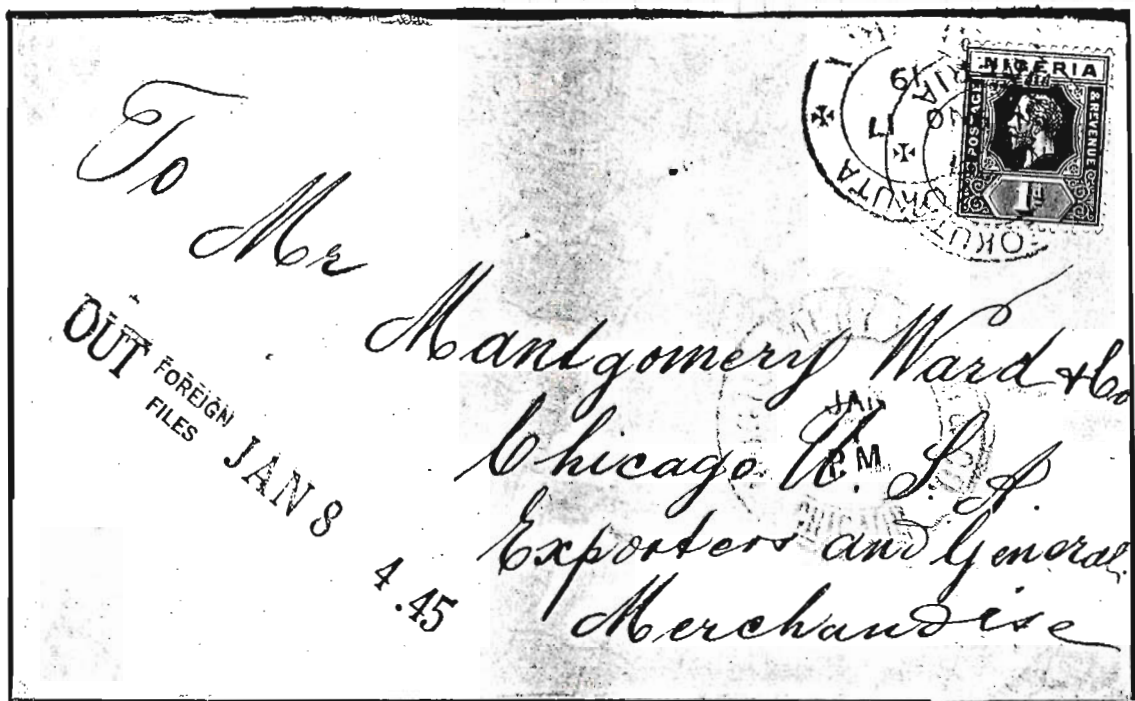 NIGERIA
POSTAGE & REVENUE
1d
OKUTA
OKUTA
19
To
Mr
Mantgomery Ward & Co
Chicago U. S. A.
Exporters and General
Merchandise
OUT FOREIGN
FILES JAN 8
4.45
JAN
PM
CHICAGO